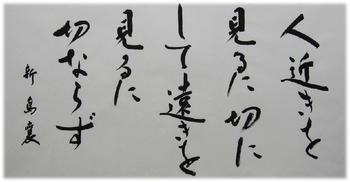 人近きを
見るに切に
して遠きを
見るに
切ならず
新島襄